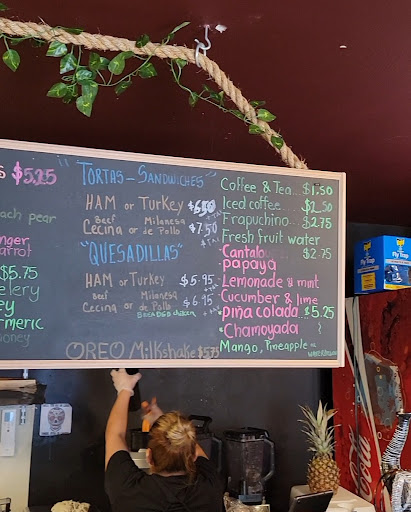 s $5.25
each pear
nger
arrot
$5.75
elery
ey
rmeric
oney
"TORTAS - SANDWICHES"
HAM or TURKEY $6.50
+TAX
Beef Milanesa
Cecina or de Pollo $7.50
+TAX
"QUESADILLAS"
HAM or TURKEY $5.95
+TAX
Beef Milanesa
Cecina or de Pollo $6.95
+TAX
OREO Milkshake $5.75
Coffee & Tea.. $1.50
Iced coffee. $2.50
Frapuchino.. $2.75
Fresh fruit water
Cantalo $2.75
papaya
Lemonade & mint
Cucumber & lime
piña colada $5.25
"Chamoyada"
Mango, Pineapple &
Fly Trap
Fly Trap